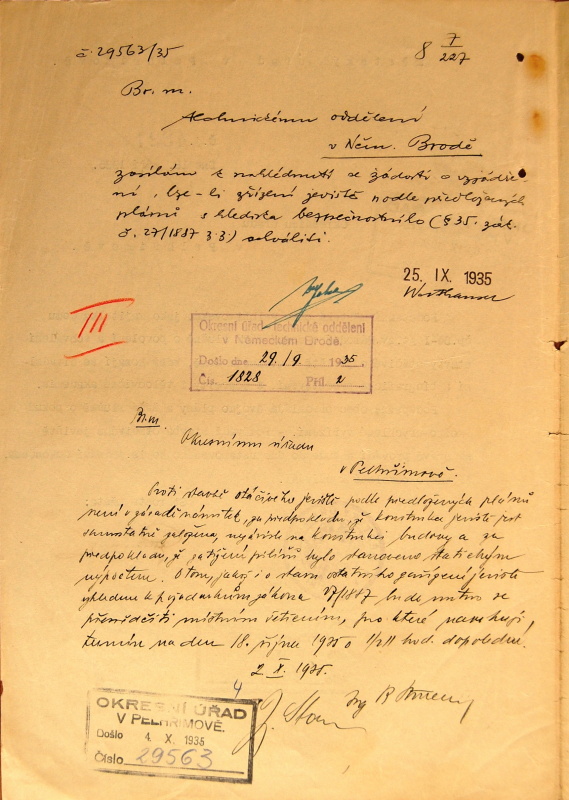 č. 29563/35
8 7/227
Br. m.
technickému oddělení
v Něm. Brodě
zasílám k nahlédnutí se žádostí o vyjádře-
ní, lze-li zřízení jeviště podle předložených
plánů s hlediska bezpečnostního (§ 35. zák.
č. 27/1887 z.z.) schváliti.
25. IX. 1935
III
Okresní úřad, technické oddělení
v Německém Brodě.
Došlo dne 29./9. 1935.
Čís. 1828 Příl. 2
Br.m.
Okresnímu úřadu
v Pelhřimově.
Proti stavbě otáčivého jeviště podle předložených plánů
není v zásadě námitek, za předpokladu, že konstrukce jeviště jest
samostatně založena, nezávisle na konstrukci budovy a za
předpokladu, že zatížení pilířů bylo stanoveno statickým
výpočtem. O tom, jakož i o stavu ostatního zařízení jeviště
vzhledem k požadavkům zákona 27/1887 bude nutno se
přesvědčiti místním šetřením, pro které navrhuji
termín na den 18. října 1935 o 1/2 11 hod. dopoledne.
2. X. 1935.
4
Ing
OKRESNÍ ÚŘAD
V PELHŘIMOVĚ.
Došlo 4. X. 1935
Číslo 29563